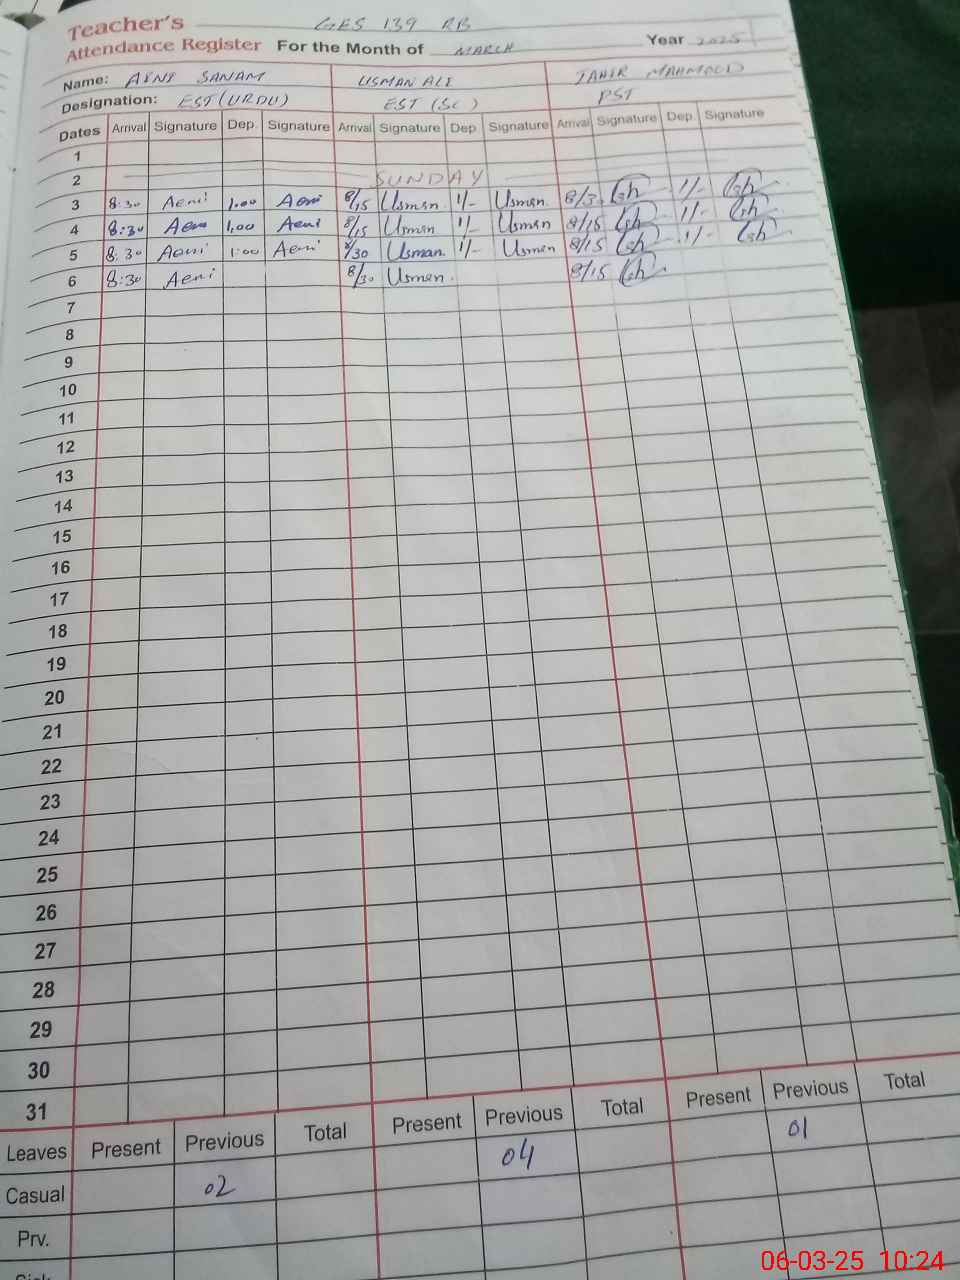 Teacher's GES 139 RB
Attendance Register For the Month of MARCH Year 2025
Name: AENI SANAM USMAN ALI TAHIR MAHMOOD
Designation: EST (URDU) EST (SC) PST
Dates Arrival Signature Dep. Signature Arrival Signature Dep. Signature Arrival Signature Dep. Signature
1
2 SUNDAY
3 8:30 Aeni 1.00 Aeni 8/15 Usman 1/- Usman 8/30 1/-
4 8:30 Aeni 1.00 Aeni 8/15 Usman 1/- Usman 8/15 1/-
5 8:30 Aeni 1:00 Aeni 8/30 Usman 1/- Usman 8/15 1/-
6 8:30 Aeni 8/30 Usman 8/15
7
8
9
10
11
12
13
14
15
16
17
18
19
20
21
22
23
24
25
26
27
28
29
30
31
Leaves Present Previous Total Present Previous Total Present Previous Total
Casual 02 04 01
Prv.
06-03-25 10:24